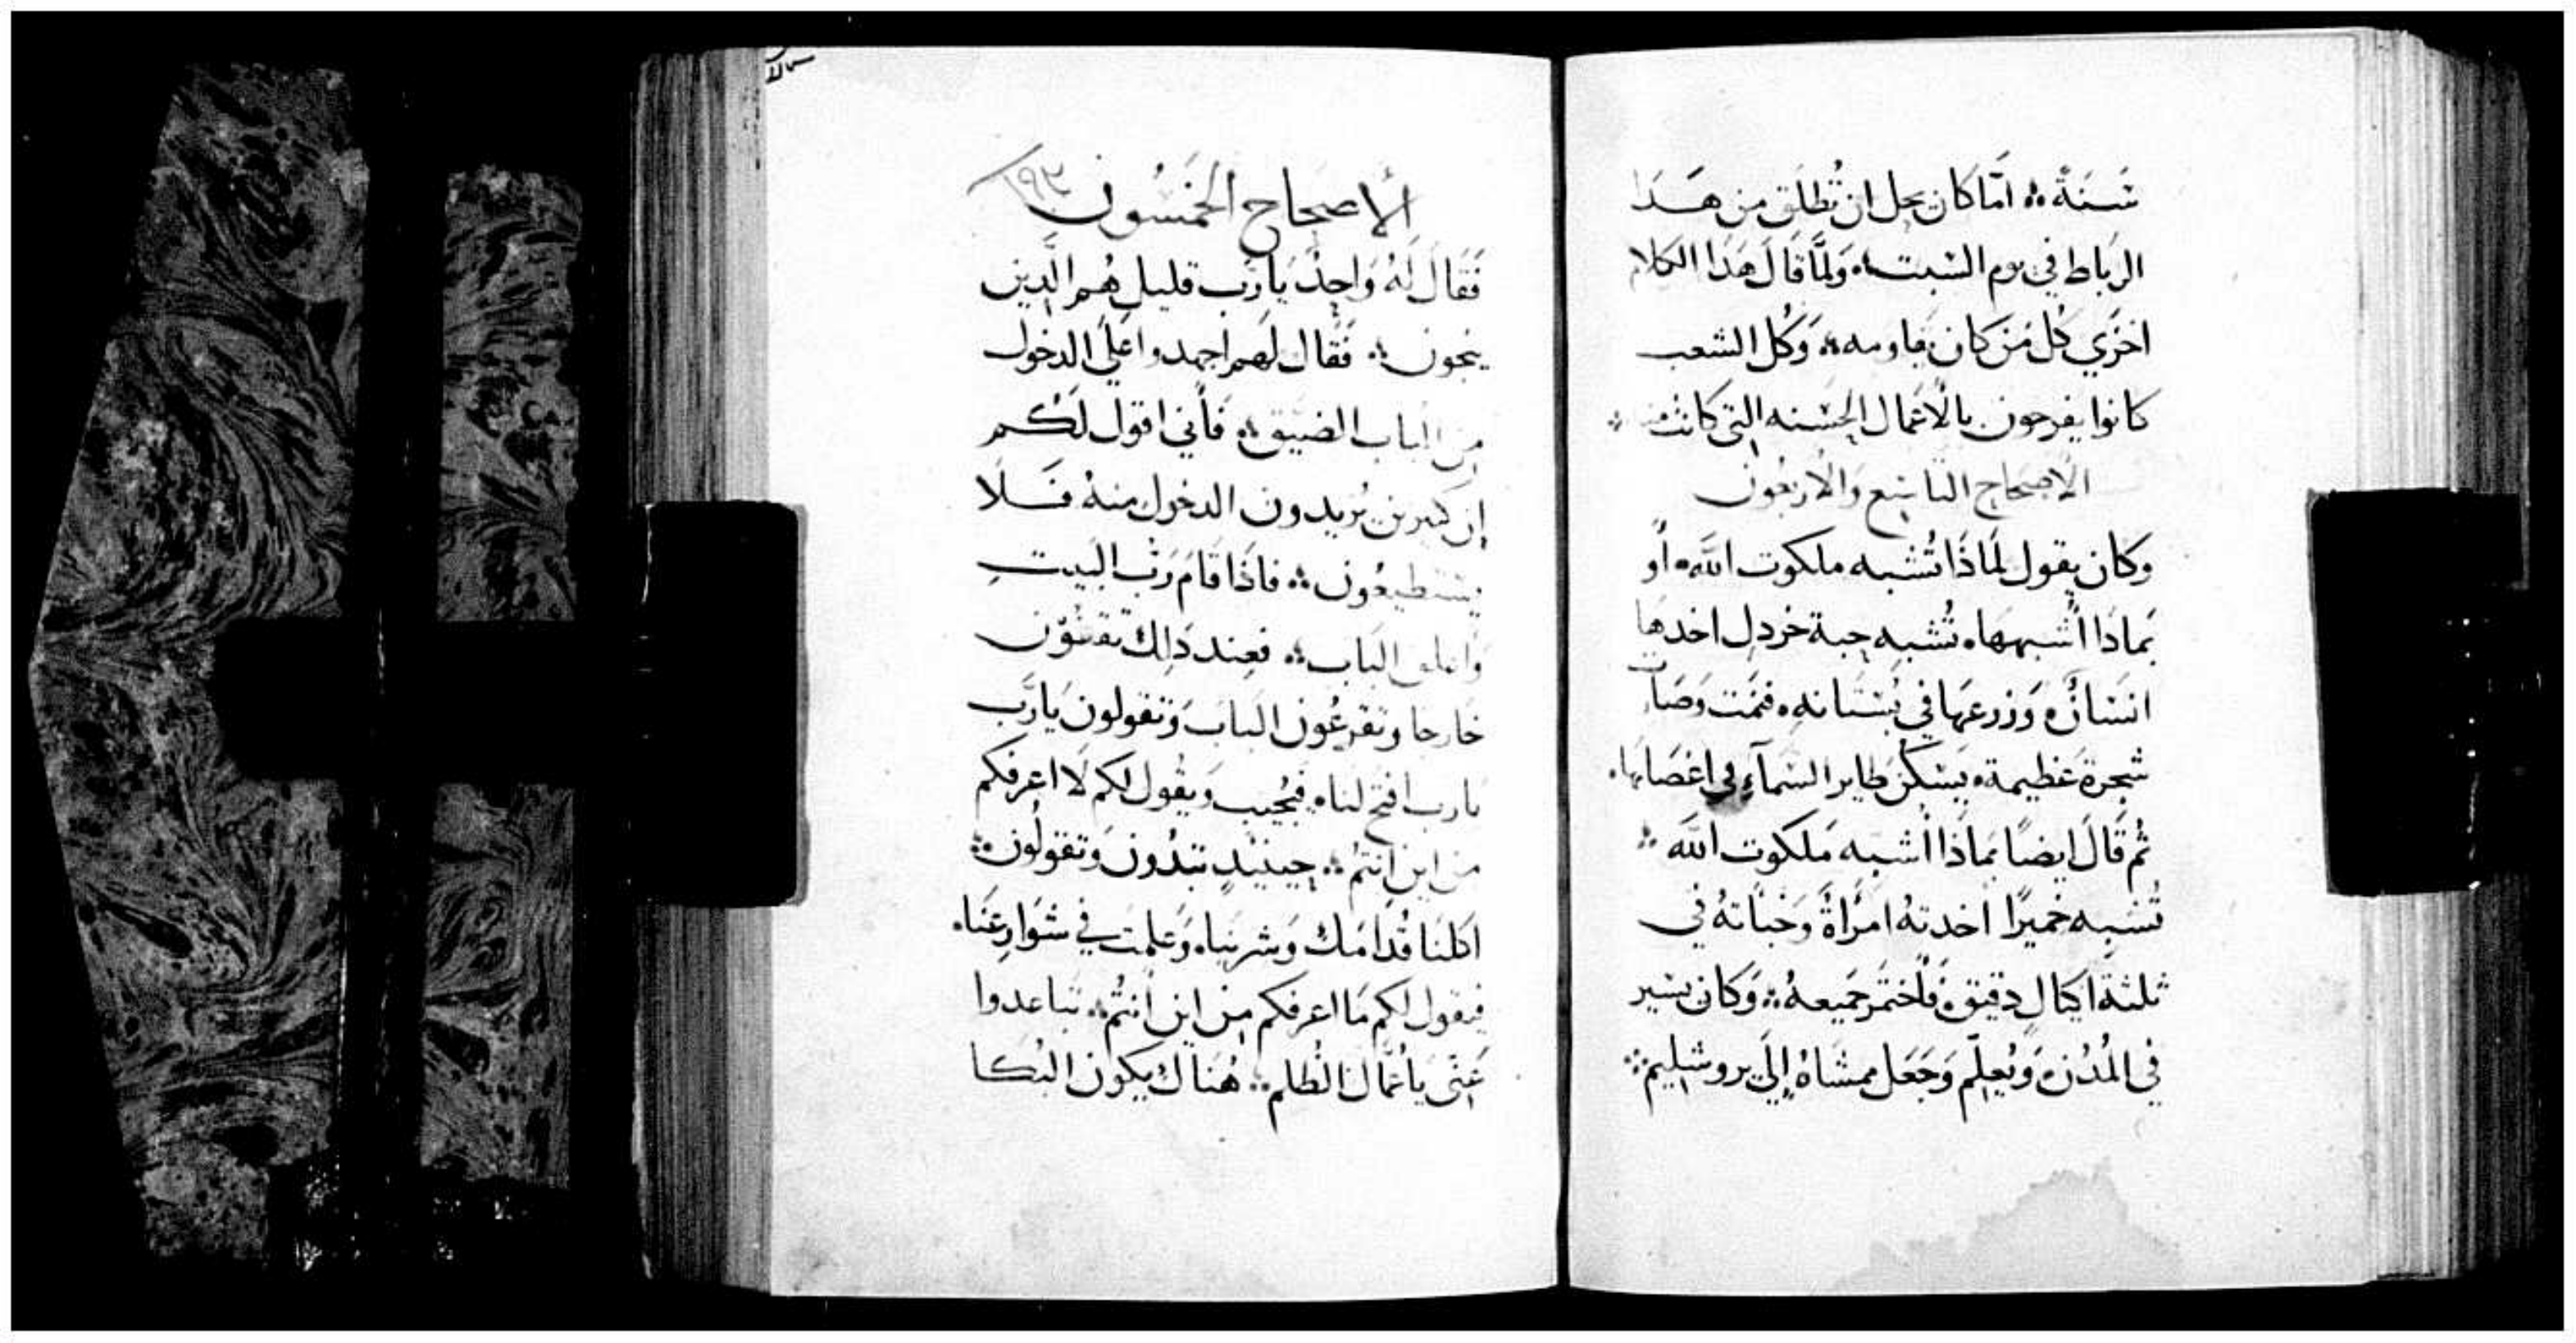 سَنَةً ܀ امَا كان يحل ان تُطلَق من هَذا
الرباط في يوم السَبت ܀ وَلمَّا قَالَ هَذا الكلام
اخزَي كُل مَن كان يقاومه ܀ وَكُل الشعب
كانوا يفرحون بالأعمال الحسَنه التي كانت منه ܀
الاصحَاح التاسِع وَالاربعُون
وكان يقول لمَاذَا تُشبه ملكوت اللّه ܀ أو
بمَاذَا أشبهها ܀ تُشبه حبة خردل اخدهَا
انسَانٌ ܀ وَزرعهَا في بُستَانهِ ܀ فنمَت وَصَارت
شجرة عَظيمة ܀ يَسكُن طَاير السَمآءِ في اغصَانهَا ܀
ثُم قَالَ ايضًا بمَاذَا أشبه مَلكوت اللّه ܀
تُشبِه خميرًا اخدتهُ امرَأةً وَخبَأتهُ في
ثلثة اكيَال دقيق ܀ فَأختمر جَميعهُ ܀ وَكَان يسير
في المُدُن ܀ وَيُعلِّم وَجَعَل ممشَاهُ إلَي يروشليم ܀
الإصحاح الخَمسُون ١٩٣
فَقَالَ لَهُ وَاحِدٌ يَا رَب قليل هُم الَّدِين
ينجون ܀ فَقَال لهم اجهدوا عَلَي الدخول
مِن الباب الضَيق ܀ فَأني اقول لَكُم
إن كثيرين يُريدون الدخول منهُ فَلَا
يستطيعُون ܀ فاذَا قَامَ رَبُ البَيت
وَاغلق البَاب ܀ فعِند دَلِك تقفُوُن
خارجا وتقرعُون البابَ وَتقولون يَارَب
يارب افتح لناه ܀ فيُجيب وَيقُول لكم لَا اعرفكم
من اين انتُم ܀ حِينَيدٍ تبدُون وَتقولُون ܀
اكلنَا قُدامَك وَشربنَا ܀ وَعلمت في شوَارعِنَا ܀
فيقول لكم مَا اعرفكم مِن اين انتُم ܀ تباعدوا
عَنّي يَا عُمَّال الظُلم ܀ هُنَاك يكون البُكَا